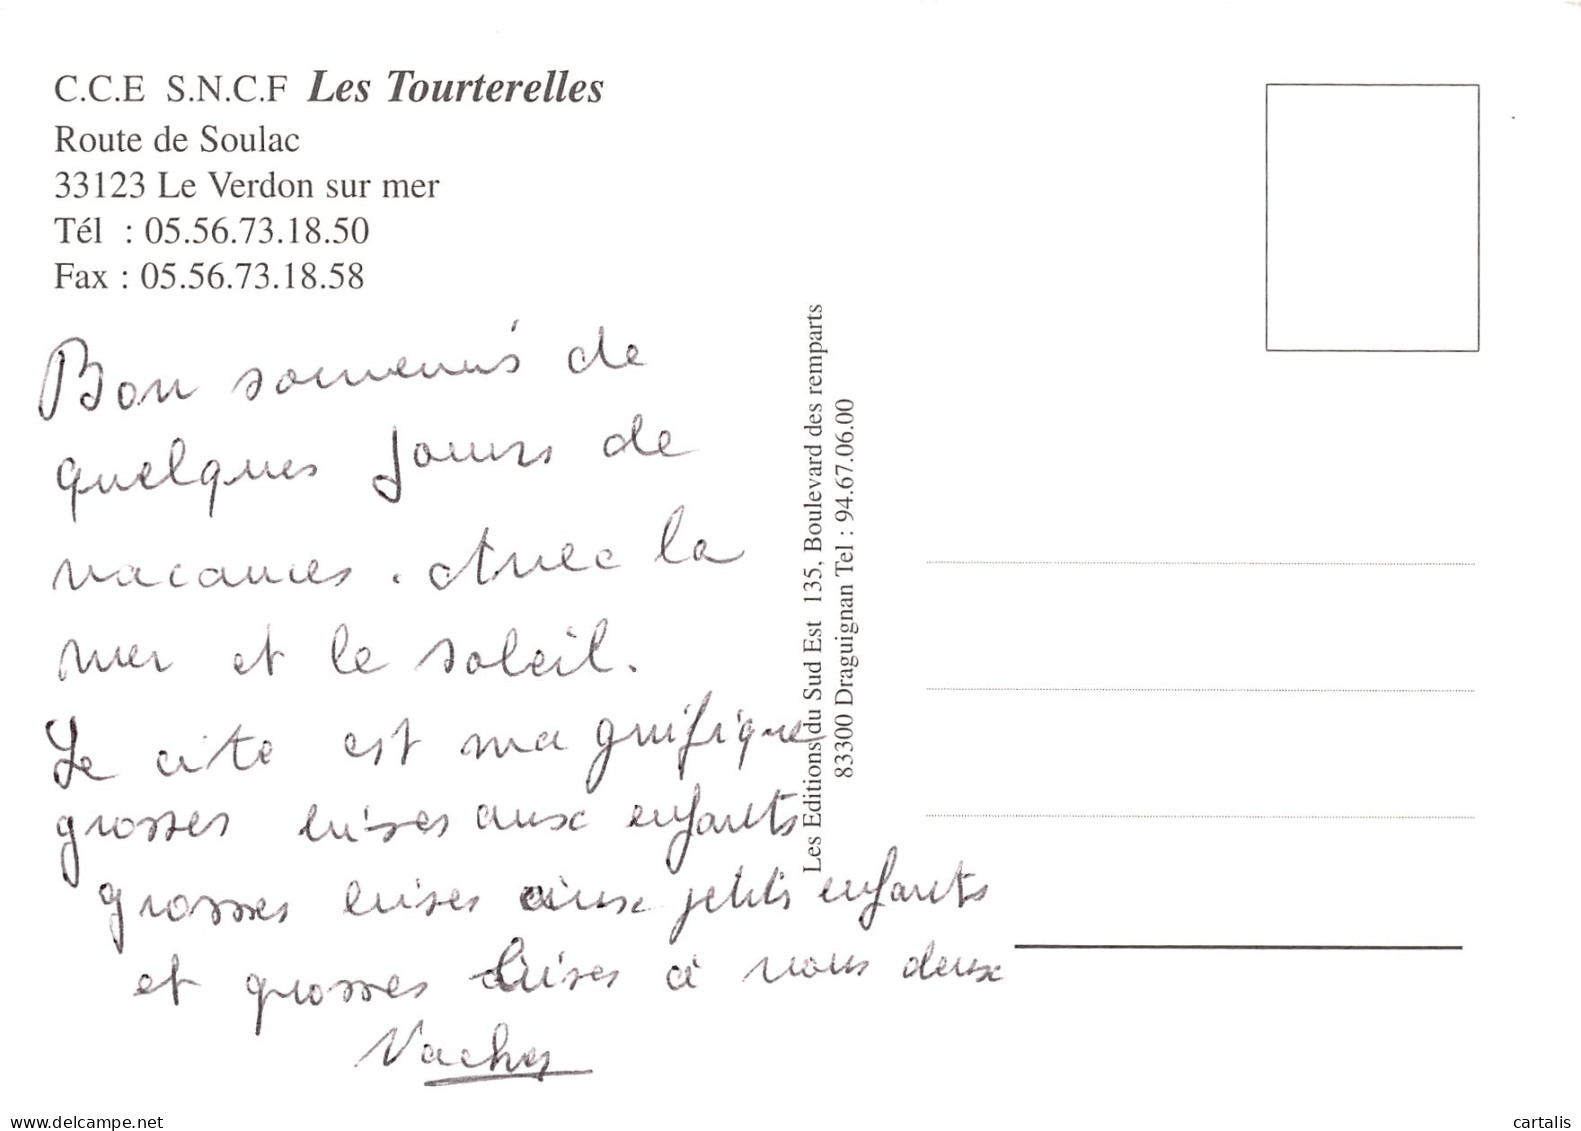 C.C.E S.N.C.F Les Tourterelles
Route de Soulac
33123 Le Verdon sur mer
Tél : 05.56.73.18.50
Fax : 05.56.73.18.58
Bon souvenirs de
quelques jours de
vacances. Avec la
mer et le soleil.
Le cite est magnifique
grosses bises aux enfants
grosses bises aux petits enfants
et grosses bises à vous deux
Les Editions du Sud Est 135, Boulevard des remparts
83300 Draguignan Tel : 94.67.06.00
delcampe.net
cartalis